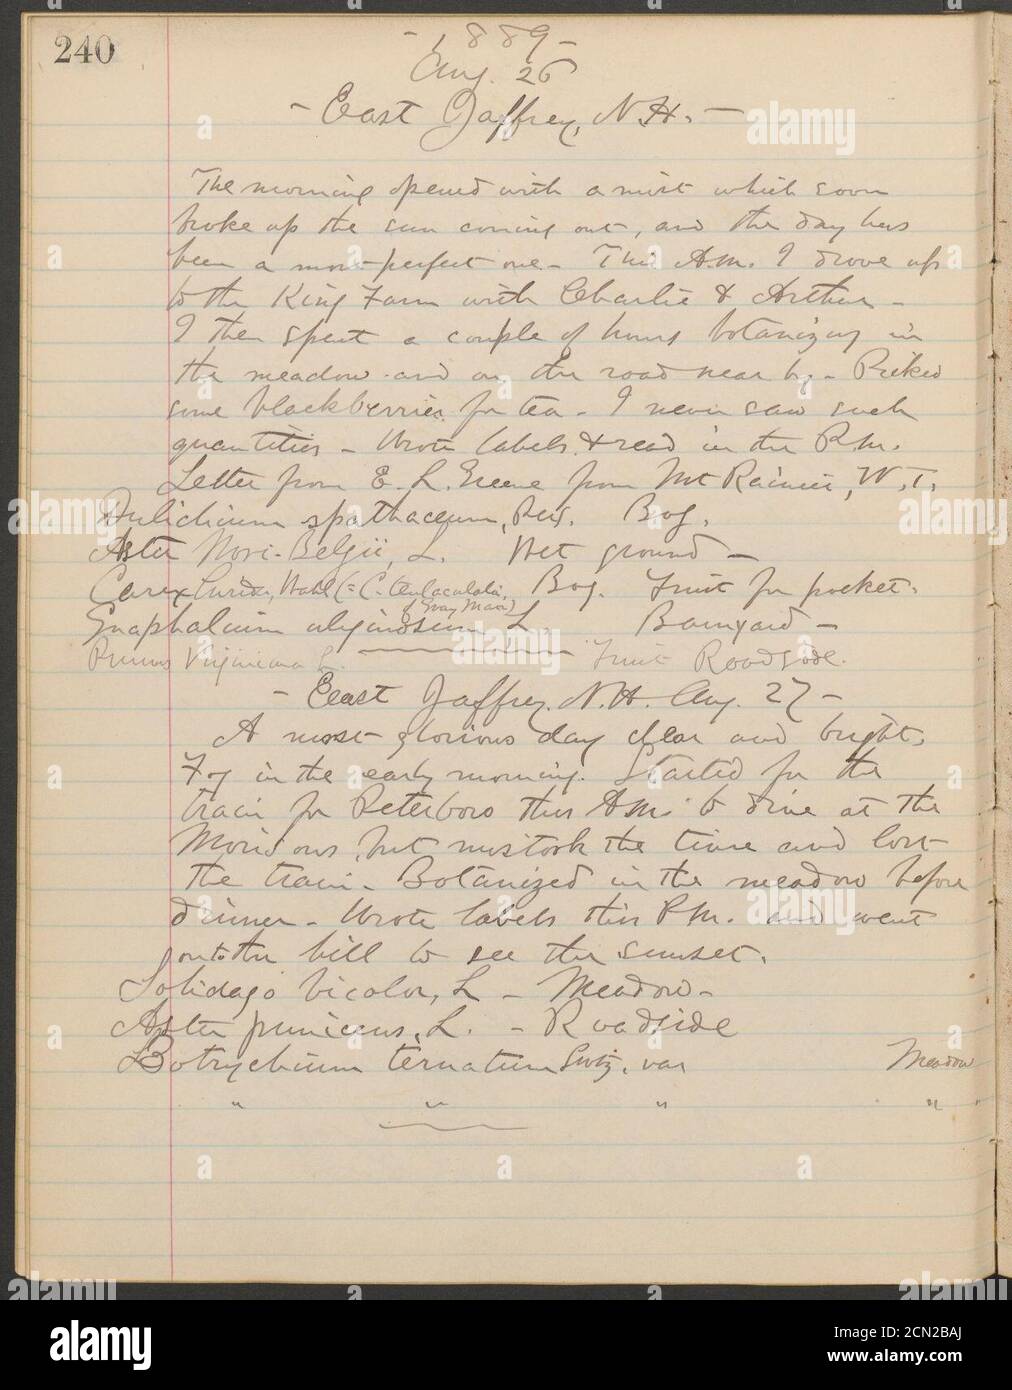 240
- 1889 -
Aug. 26
- East Jaffrey, N.H. -
The morning opened with a mist which soon
broke up the sun coming out, and the day has
been a most perfect one - This A.M. I drove up
to the King Farm with Charlie & Arthur -
I then spent a couple of hours botanizing in
the meadow and on the road near by - Picked
some blackberries for tea - I never saw such
quantities - Wrote labels & read in the P.M.
Letter from E. L. Greene from Mt Rainier, W.T.
Dulichium spathaceum, Pers. Bog.
Aster Novi-Belgii, L. Wet ground -
Carex lurida, Wahl (= C. tentaculata, Bog. Fruit for pocket.
of Gray Man.)
Gnaphalium uliginosum L. Barnyard -
Prunus Virginiana L. Fruit Roadside.
- East Jaffrey, N.H. Aug. 27 -
A most glorious day clear and bright,
Fog in the early morning. Started for the
train for Peterboro this A.M. to dine at the
Morisons, but mistook the time and lost
the train - Botanized in the meadow before
dinner - Wrote labels this P.M. and went
onto the hill to see the sunset.
Solidago bicolor, L - Meadow -
Aster puniceus, L. - Roadside
Botrychium ternatum Swtz. var Meadow
" " " "
alamy
Image ID: 2CN2BAJ
www.alamy.com